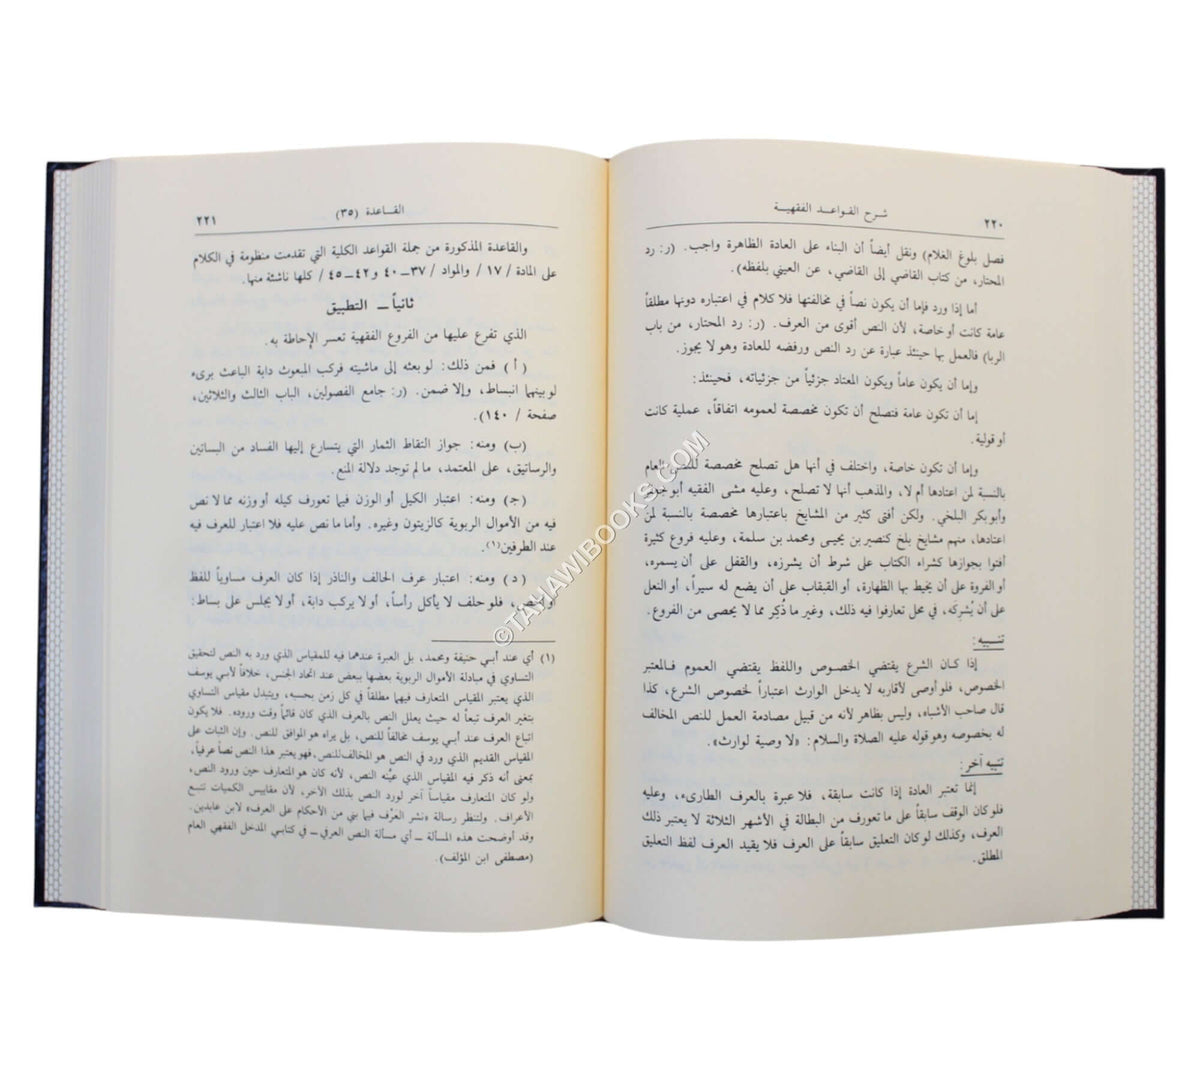 شرح القواعد الفقهية
٢٢٠
فصل بلوغ الغلام) ونقل أيضاً أن البناء على العادة الظاهرة واجب. (ر: رد
المحتار، من كتاب القاضي إلى القاضي، عن العيني بلفظه).
أما إذا ورد فإما أن يكون نصاً في مخالفتها فلا كلام في اعتباره دونها مطلقاً
عامة كانت أو خاصة، لأن النص أقوى من العرف. (ر: رد المحتار، من باب
الربا) فالعمل بها حينئذ عبارة عن رد النص ورفضه للعادة وهو لا يجوز.
وإما أن يكون عاماً ويكون المعتاد جزئياً من جزئياته، فحينئذ:
إما أن تكون عامة فتصلح أن تكون مخصصة لعمومه اتفاقاً، عملية كانت
أو قولية.
وإما أن تكون خاصة، واختلف في أنها هل تصلح مخصصة للنص العام
بالنسبة لمن اعتادها أم لا، والمذهب أنها لا تصلح، وعليه مشى الفقيه أبو جعفر
وأبو بكر البلخي. ولكن أفتى كثير من المشايخ باعتبارها مخصصة بالنسبة لمن
اعتادها، منهم مشايخ بلخ كنصير بن يحيى ومحمد بن سلمة، وعليه فروع كثيرة
أفتوا بجوازها كشراء الكتاب على شرط أن يشرزه، والقفل على أن يسمره،
أو الفروة على أن يخيط بها الظهارة، أو القبقاب على أن يضع له سيراً، أو النعل
على أن يُشركه، في محل تعارفوا فيه ذلك، وغير ما ذُكر مما لا يحصى من الفروع.
تنبيه:
إذا كان الشرع يقتضي الخصوص واللفظ يقتضي العموم فالمعتبر
الخصوص، فلو أوصى لأقاربه لا يدخل الوارث اعتباراً لخصوص الشرع، كذا
قال صاحب الأشباه، وليس بظاهر لأنه من قبيل مصادمة العمل للنص المخالف
له بخصوصه وهو قوله عليه الصلاة والسلام: «لا وصية لوارث».
تنبيه آخر:
إنما تعتبر العادة إذا كانت سابقة، فلا عبرة بالعرف الطارىء، وعليه
فلو كان الوقف سابقاً على ما تعورف من البطالة في الأشهر الثلاثة لا يعتبر ذلك
العرف، وكذلك لو كان التعليق سابقاً على العرف فلا يقيد العرف لفظ التعليق
المطلق.
القاعدة (٣٥)
٢٢١
والقاعدة المذكورة من جملة القواعد الكلية التي تقدمت منظومة في الكلام
على المادة / ١٧ / والمواد / ٣٧ – ٤٠ و ٤٢ – ٤٥ / كلها ناشئة منها.
ثانياً – التطبيق
الذي تفرع عليها من الفروع الفقهية تعسر الإحاطة به.
(أ) فمن ذلك: لو بعثه إلى ماشيته فركب المبعوث دابة الباعث برىء
لو بينهما انبساط، وإلا ضمن. (ر: جامع الفصولين، الباب الثالث والثلاثين،
صفحة / ١٤٠).
(ب) ومنه: جواز التقاط الثمار التي يتسارع إليها الفساد من البساتين
والرساتيق، على المعتمد، ما لم توجد دلالة المنع.
(جـ) ومنه: اعتبار الكيل أو الوزن فيما تعورف كيله أو وزنه مما لا نص
فيه من الأموال الربوية كالزيتون وغيره. وأما ما نص عليه فلا اعتبار للعرف فيه
عند الطرفين(١).
(د) ومنه: اعتبار عرف الحالف والناذر إذا كان العرف مساوياً للفظ
أو أخص، فلو حلف لا يأكل رأساً، أو لا يركب دابة، أو لا يجلس على بساط:
(١) أي عند أبي حنيفة ومحمد، بل العبرة عندهما فيه للمقياس الذي ورد به النص لتحقيق
التساوي في مبادلة الأموال الربوية بعضها ببعض عند اتحاد الجنس، خلافاً لأبي يوسف
الذي يعتبر المقياس المتعارف فيهما مطلقاً في كل زمن بحسبه، ويتبدل مقياس التساوي
بتغير العرف تبعاً له حيث يعلل النص بالعرف الذي كان قائماً وقت وروده. فلا يكون
اتباع العرف عند أبي يوسف مخالفاً للنص، بل يراه هو الموافق للنص. وإن الثبات على
المقياس القديم الذي ورد في النص هو المخالف للنص، فهو يعتبر هذا النص نصاً عرفياً،
بمعنى أنه ذكر فيه المقياس الذي عيّنه النص، لأنه كان هو المتعارف حين ورود النص،
ولو كان المتعارف مقياساً آخر لورد النص بذلك الآخر، لأن مقاييس الكميات تتبع
الأعراف. ولتنظر رسالة «نشر العَرْف فيما بني من الأحكام على العرف» لابن عابدين.
وقد أوضحت هذه المسألة – أي مسألة النص العرفي – في كتابي المدخل الفقهي العام
(مصطفى ابن المؤلف).
©TAHAWIBOOKS.COM